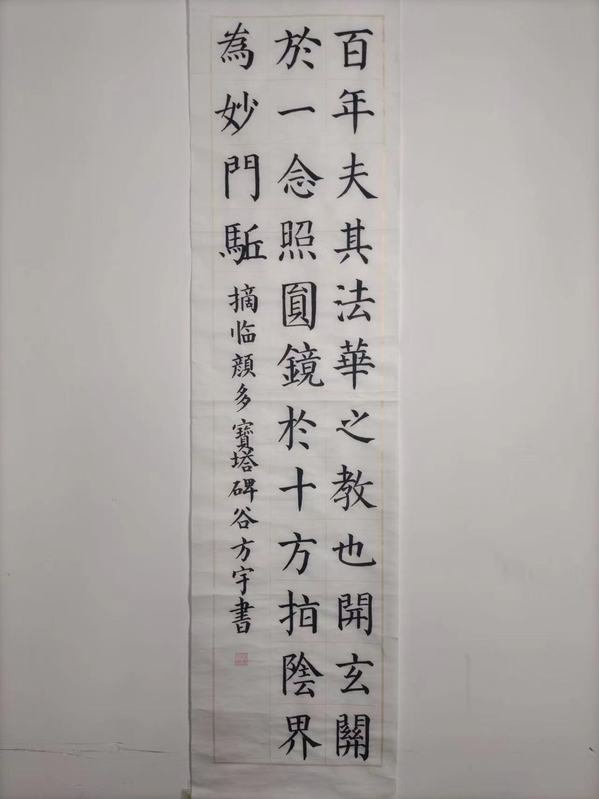 百年夫其法華之教也開玄關
於一念照圓鏡於十方指陰界
為妙門駈摘临顔多寶塔碑谷方宇書